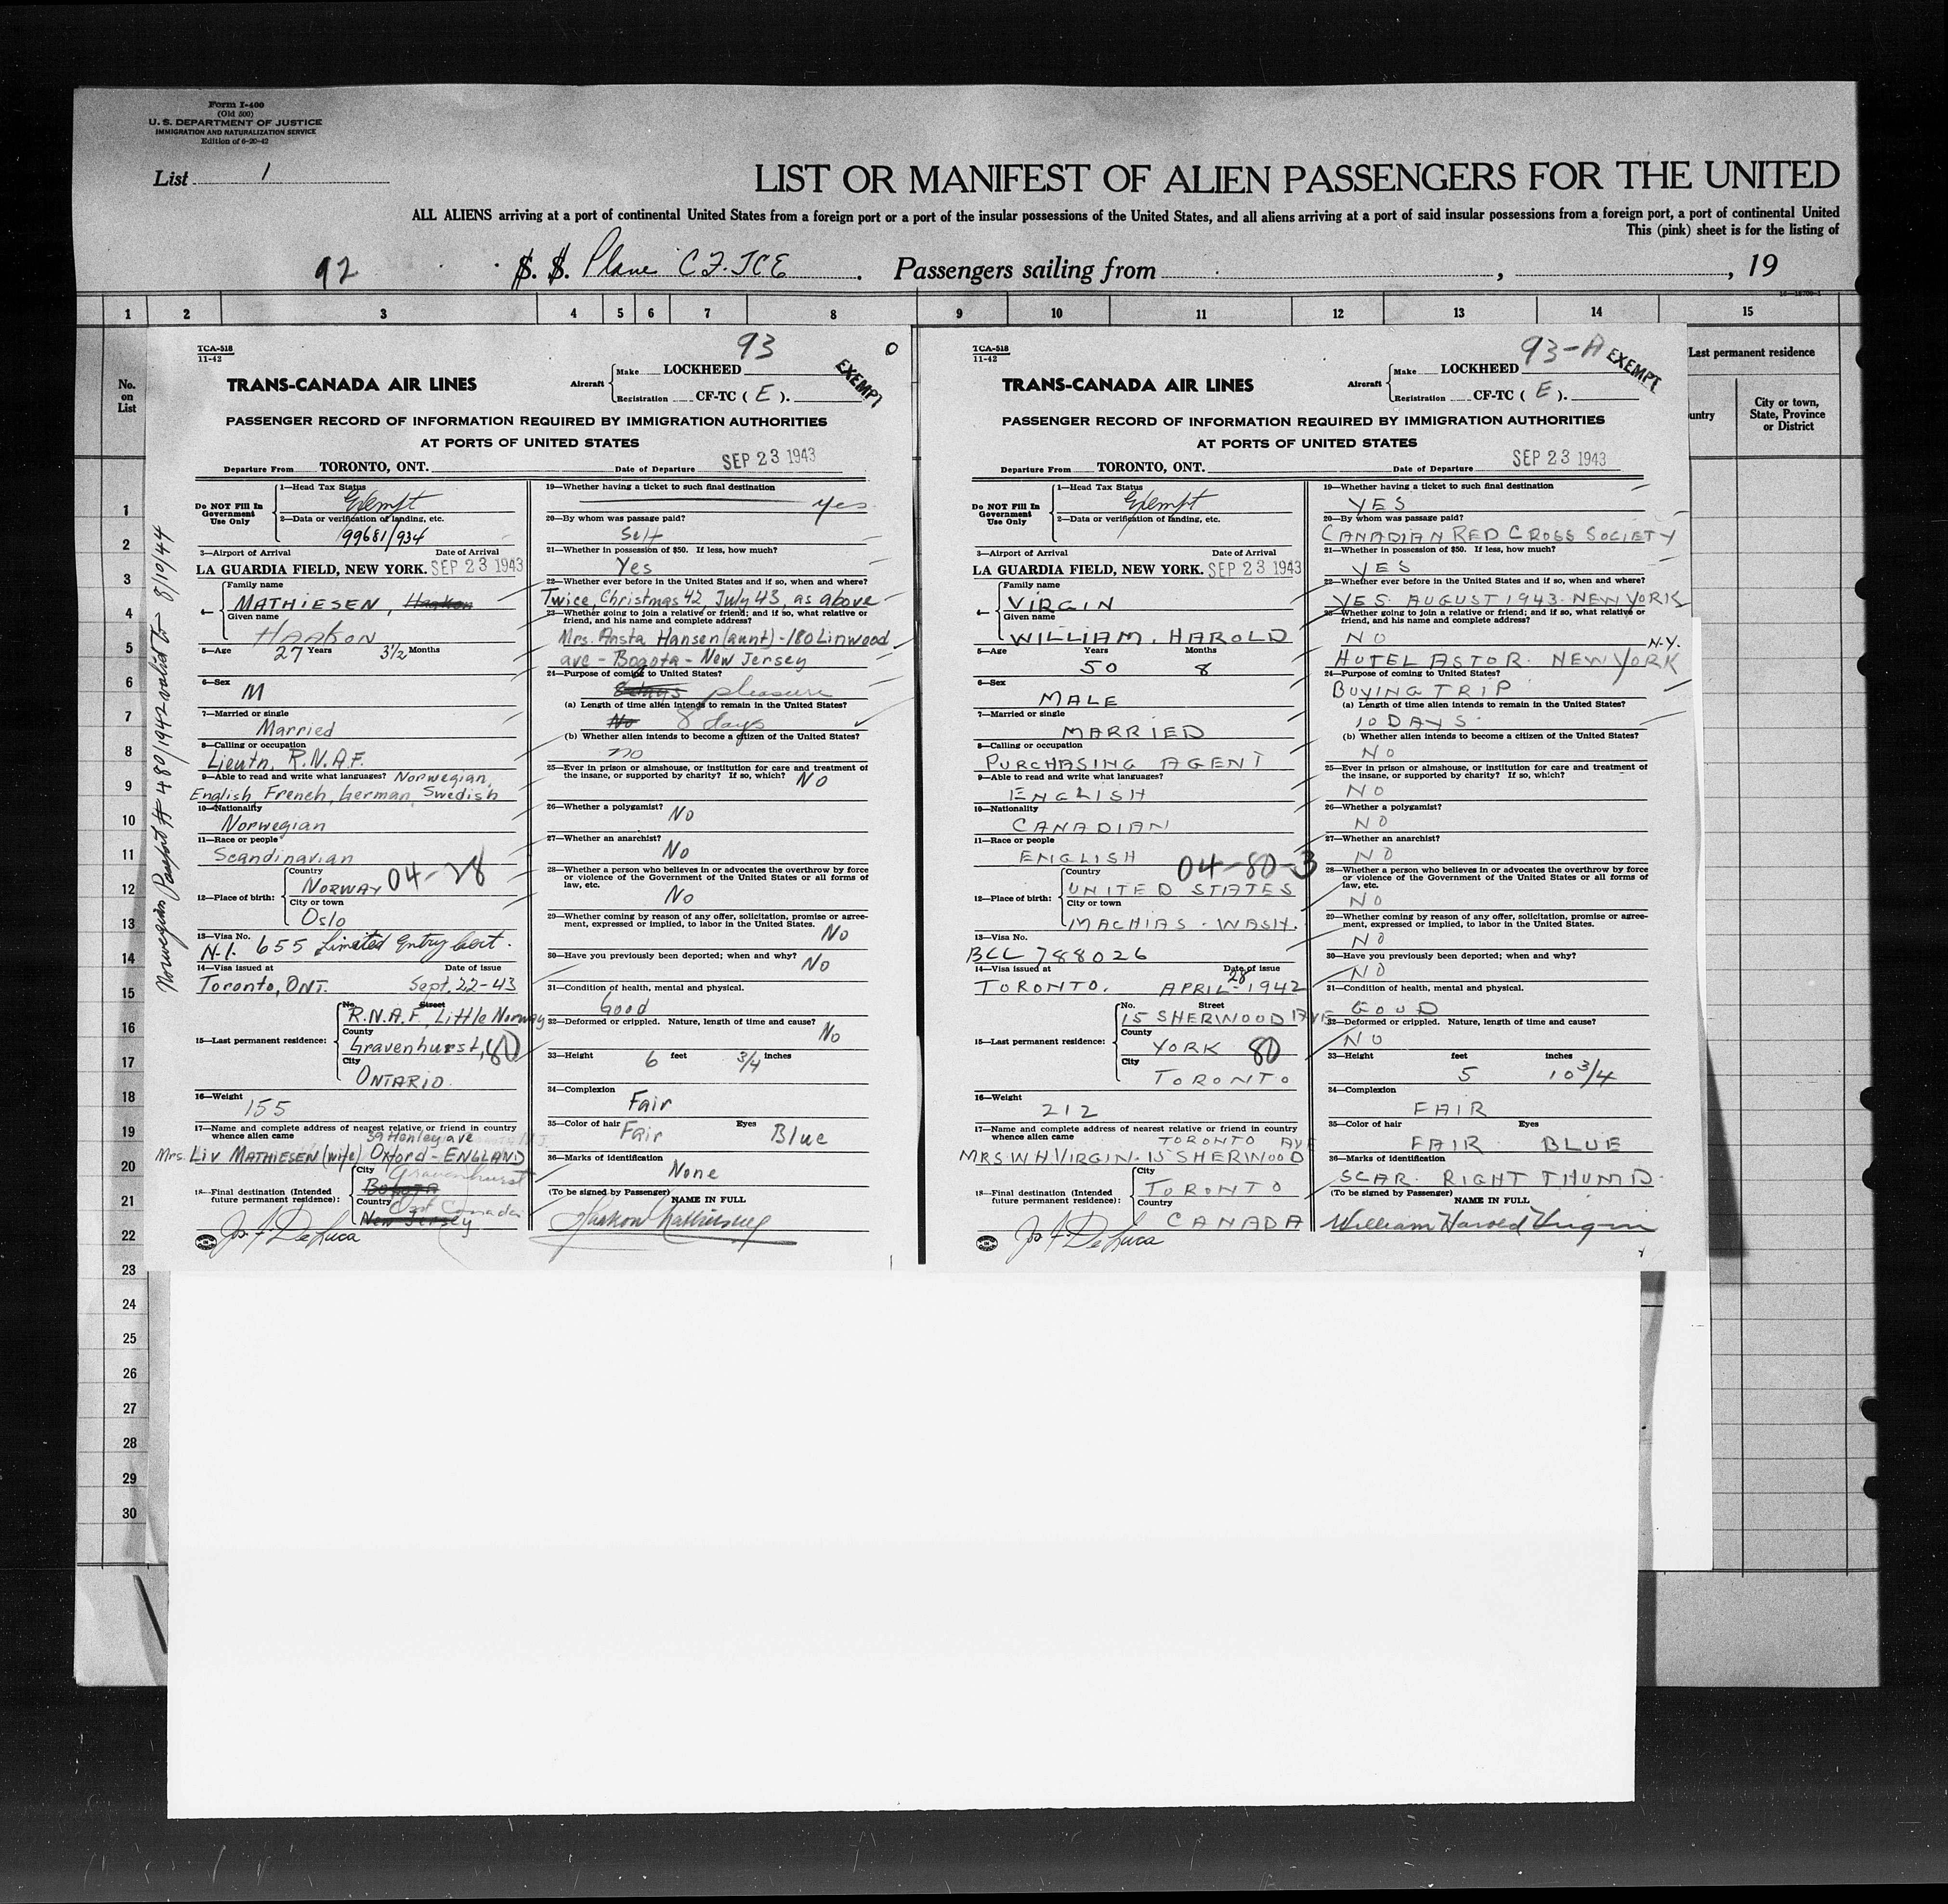 Form I-400
(Old 500)
U. S. DEPARTMENT OF JUSTICE
IMMIGRATION AND NATURALIZATION SERVICE
Edition of 6-20-42
List 1
LIST OR MANIFEST OF ALIEN PASSENGERS FOR THE UNITED
ALL ALIENS arriving at a port of continental United States from a foreign port or a port of the insular possessions of the United States, and all aliens arriving at a port of said insular possessions from a foreign port, a port of continental United
This (pink) sheet is for the listing of
92 S. S. Plane CF.TCE . Passengers sailing from , , 19
1 2 3 4 5 6 7 8 9 10 11 12 13 14 15
No.
on
List
1
2
3
4
5
6
7
8
9
10
11
12
13
14
15
16
17
18
19
20
21
22
23
24
25
26
27
28
29
30
Last permanent residence
untry
City or town,
State, Province
or District
Norwegian Passp't # 480/1942 valid to 8/10/44
TCA-518
11-42
93
O
EXEMPT
TRANS-CANADA AIR LINES
Aircraft
Make LOCKHEED
Registration CF-TC ( E ).
PASSENGER RECORD OF INFORMATION REQUIRED BY IMMIGRATION AUTHORITIES
AT PORTS OF UNITED STATES
Departure From TORONTO, ONT. Date of Departure SEP 23 1943
Do NOT Fill In
Government
Use Only
1—Head Tax Status
Exempt
2—Data or verification of landing, etc.
99681/934
3—Airport of Arrival Date of Arrival
LA GUARDIA FIELD, NEW YORK. SEP 23 1943
4—
Family name
MATHIESEN, Haakon
Given name
HAAKON
5—Age 27 Years 3½ Months
6—Sex
M
7—Married or single
Married
8—Calling or occupation
Lieutn, R.N.A.F.
9—Able to read and write what languages? Norwegian,
English French, German, Swedish
10—Nationality
Norwegian
11—Race or people
Scandinavian
12—Place of birth:
Country
NORWAY 04-28
City or town
Oslo
13—Visa No.
N-I. 655 Limited Entry Cert.
14—Visa issued at Date of issue
Toronto, ONT. Sept. 22-43
15—Last permanent residence:
No. Street
R.N.A.F. Little Norway
County
Gravenhurst, 80
City
ONTARIO.
16—Weight
155
17—Name and complete address of nearest relative or friend in country
whence alien came
39 Henley ave
Mrs. LIV MATHIESEN (wife) Oxford - ENGLAND
18—Final destination (Intended
future permanent residence):
City Gravenhurst
Bogota
Country Ont Canada
New Jersey
Jos. F. DeLuca
19—Whether having a ticket to such final destination
yes
20—By whom was passage paid?
Self
21—Whether in possession of $50. If less, how much?
Yes
22—Whether ever before in the United States and if so, when and where?
Twice, Christmas 42 July 43, as above
23—Whether going to join a relative or friend; and if so, what relative or
friend, and his name and complete address?
Mrs. Ansta Hansen (aunt) - 180 Linwood
ave - Bogota - New Jersey
24—Purpose of coming to United States?
pleasure
(a) Length of time alien intends to remain in the United States?
No 8 days
(b) Whether alien intends to become a citizen of the United States?
no
25—Ever in prison or almshouse, or institution for care and treatment of
the insane, or supported by charity? If so, which? NO
26—Whether a polygamist?
No
27—Whether an anarchist?
No
28—Whether a person who believes in or advocates the overthrow by force
or violence of the Government of the United States or all forms of
law, etc.
No
29—Whether coming by reason of any offer, solicitation, promise or agree-
ment, expressed or implied, to labor in the United States.
No
30—Have you previously been deported; when and why?
No
31—Condition of health, mental and physical.
Good
32—Deformed or crippled. Nature, length of time and cause?
No
33—Height 6 feet 3/4 inches
34—Complexion
Fair
35—Color of hair Eyes
Fair Blue
36—Marks of identification
None
(To be signed by Passenger) NAME IN FULL
Haakon Mathiesen
TCA-518
11-42
93-A
EXEMPT
TRANS-CANADA AIR LINES
Aircraft
Make LOCKHEED
Registration CF-TC ( E ).
PASSENGER RECORD OF INFORMATION REQUIRED BY IMMIGRATION AUTHORITIES
AT PORTS OF UNITED STATES
Departure From TORONTO, ONT. Date of Departure SEP 23 1943
Do NOT Fill In
Government
Use Only
1—Head Tax Status
Exempt
2—Data or verification of landing, etc.
3—Airport of Arrival Date of Arrival
LA GUARDIA FIELD, NEW YORK. SEP 23 1943
4—
Family name
VIRGIN
Given name
WILLIAM. HAROLD
5—Age Years Months
50 8
6—Sex
MALE
7—Married or single
MARRIED
8—Calling or occupation
PURCHASING AGENT
9—Able to read and write what languages?
ENGLISH
10—Nationality
CANADIAN
11—Race or people
ENGLISH 04-80-3
12—Place of birth:
Country
UNITED STATES
City or town
MACHIAS - WASH.
13—Visa No.
BCC 788026
14—Visa issued at Date of issue
TORONTO. APRIL 28 - 1942
15—Last permanent residence:
No. Street
15 SHERWOOD AVE
County
YORK 80
City
TORONTO
16—Weight
212
17—Name and complete address of nearest relative or friend in country
whence alien came
TORONTO AVE
MRS W.H. VIRGIN. 15 SHERWOOD
18—Final destination (Intended
future permanent residence):
City
TORONTO
Country
CANADA
Jos. F. DeLuca
19—Whether having a ticket to such final destination
YES
20—By whom was passage paid?
CANADIAN RED CROSS SOCIETY
21—Whether in possession of $50. If less, how much?
YES
22—Whether ever before in the United States and if so, when and where?
YES. AUGUST 1943. NEW YORK
23—Whether going to join a relative or friend; and if so, what relative or
friend, and his name and complete address?
NO N.Y.
HOTEL ASTOR. NEW YORK
24—Purpose of coming to United States?
BUYING TRIP
(a) Length of time alien intends to remain in the United States?
10 DAYS.
(b) Whether alien intends to become a citizen of the United States?
NO
25—Ever in prison or almshouse, or institution for care and treatment of
the insane, or supported by charity? If so, which?
NO
26—Whether a polygamist?
NO
27—Whether an anarchist?
NO
28—Whether a person who believes in or advocates the overthrow by force
or violence of the Government of the United States or all forms of
law, etc.
NO
29—Whether coming by reason of any offer, solicitation, promise or agree-
ment, expressed or implied, to labor in the United States.
NO
30—Have you previously been deported; when and why?
NO
31—Condition of health, mental and physical.
GOOD
32—Deformed or crippled. Nature, length of time and cause?
NO
33—Height feet inches
5 10 3/4
34—Complexion
FAIR
35—Color of hair Eyes
FAIR BLUE
36—Marks of identification
SCAR. RIGHT THUMB.
(To be signed by Passenger) NAME IN FULL
William Harold Virgin